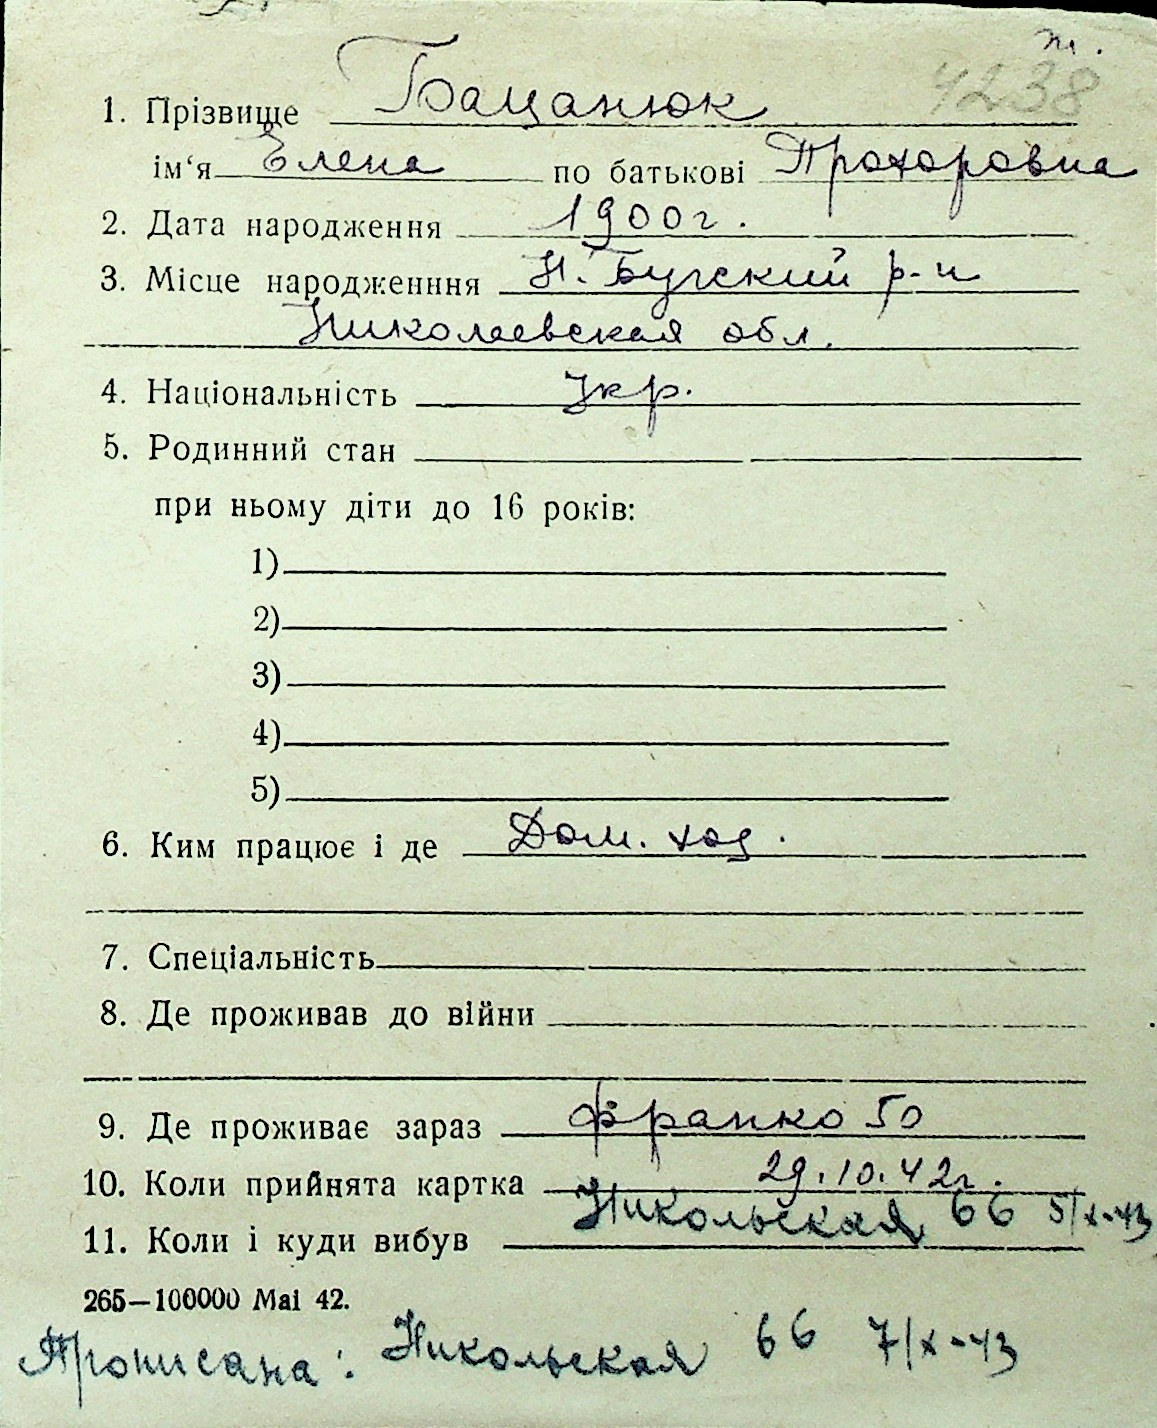 т.
4238
1. Прізвище Бацанюк
ім‘я Елена по батькові Прохоровна
2. Дата народження 1900г.
3. Місце народженння Н. Бугский р-н
Николаевская обл.
4. Національність Укр.
5. Родинний стан
при ньому діти до 16 років:
1)
2)
3)
4)
5)
6. Ким працює і де Дом. хоз.
7. Спеціальність
8. Де проживав до війни
9. Де проживає зараз Франко 50
10. Коли прийнята картка 29.10.42г.
11. Коли і куди вибув Никольская 66 5/X-43
265—100000 Mai 42.
Прописана: Никольская 66 7/X-43